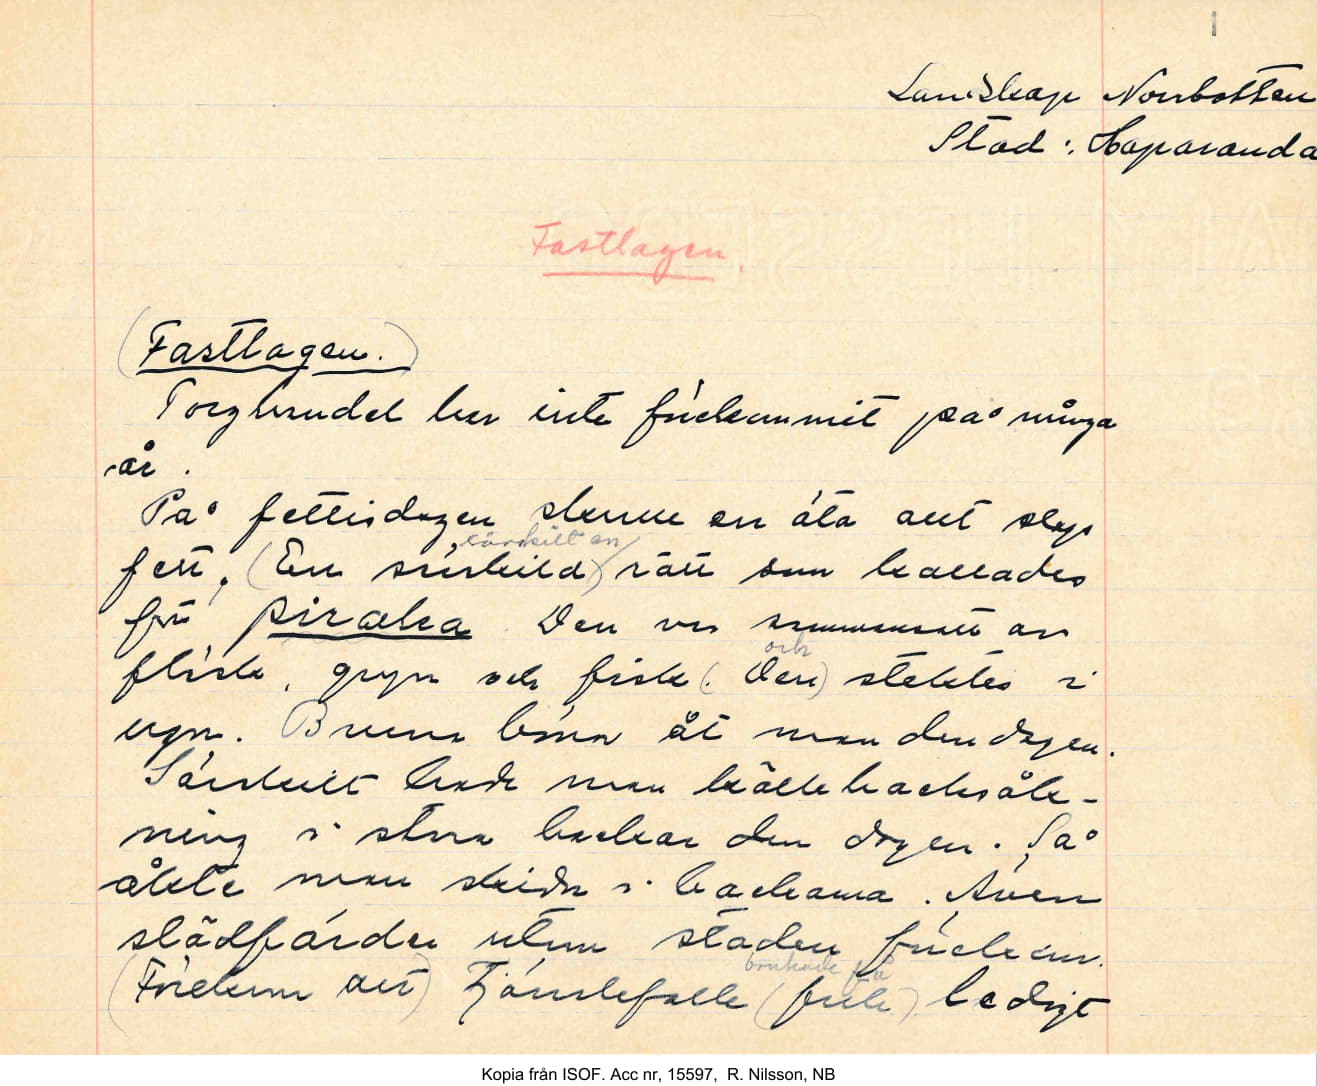 1
Landskap Norrbotten
Stad: Haparanda
Fastlagen.
(Fastlagen.)
Torgbrudel har inte förekommit på många
år.
På fettisdagen skulle en äta allt slags
särskilt en
fett, (En särskild) rätt som kallades
för piraka Den var sammansatt av
och
fläsk, gryn och fisk (. Den) stektes i
ugn. Bruna bönor åt man den dagen.
Särskilt hade man kälkbacksåk-
ning i stora backar den dagen. Så
åkte man skidor i backarna. Även
slädfärder utom staden förekom.
brukade få
(Förekom att) Tjänstefolk (fick) ledigt
Kopia från ISOF. Acc nr, 15597, R. Nilsson, NB